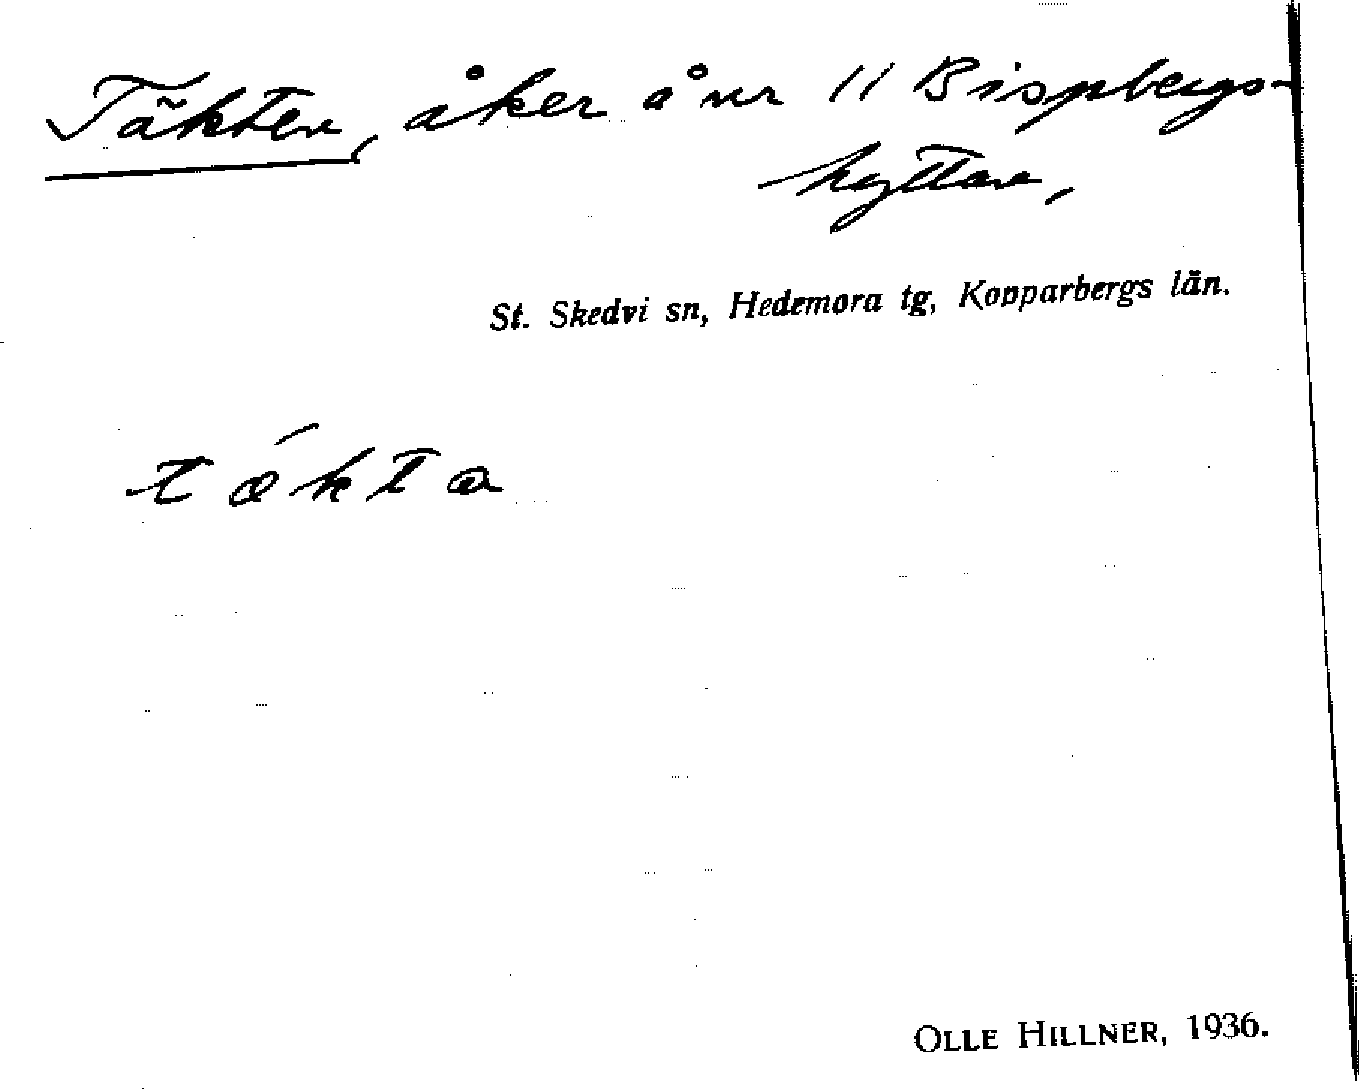 Täkten, åker å nr 11 Bispbergs-
hyttan,
St. Skedvi sn, Hedemora tg, Kopparbergs län.
tǽkta
OLLE HILLNER, 1936.